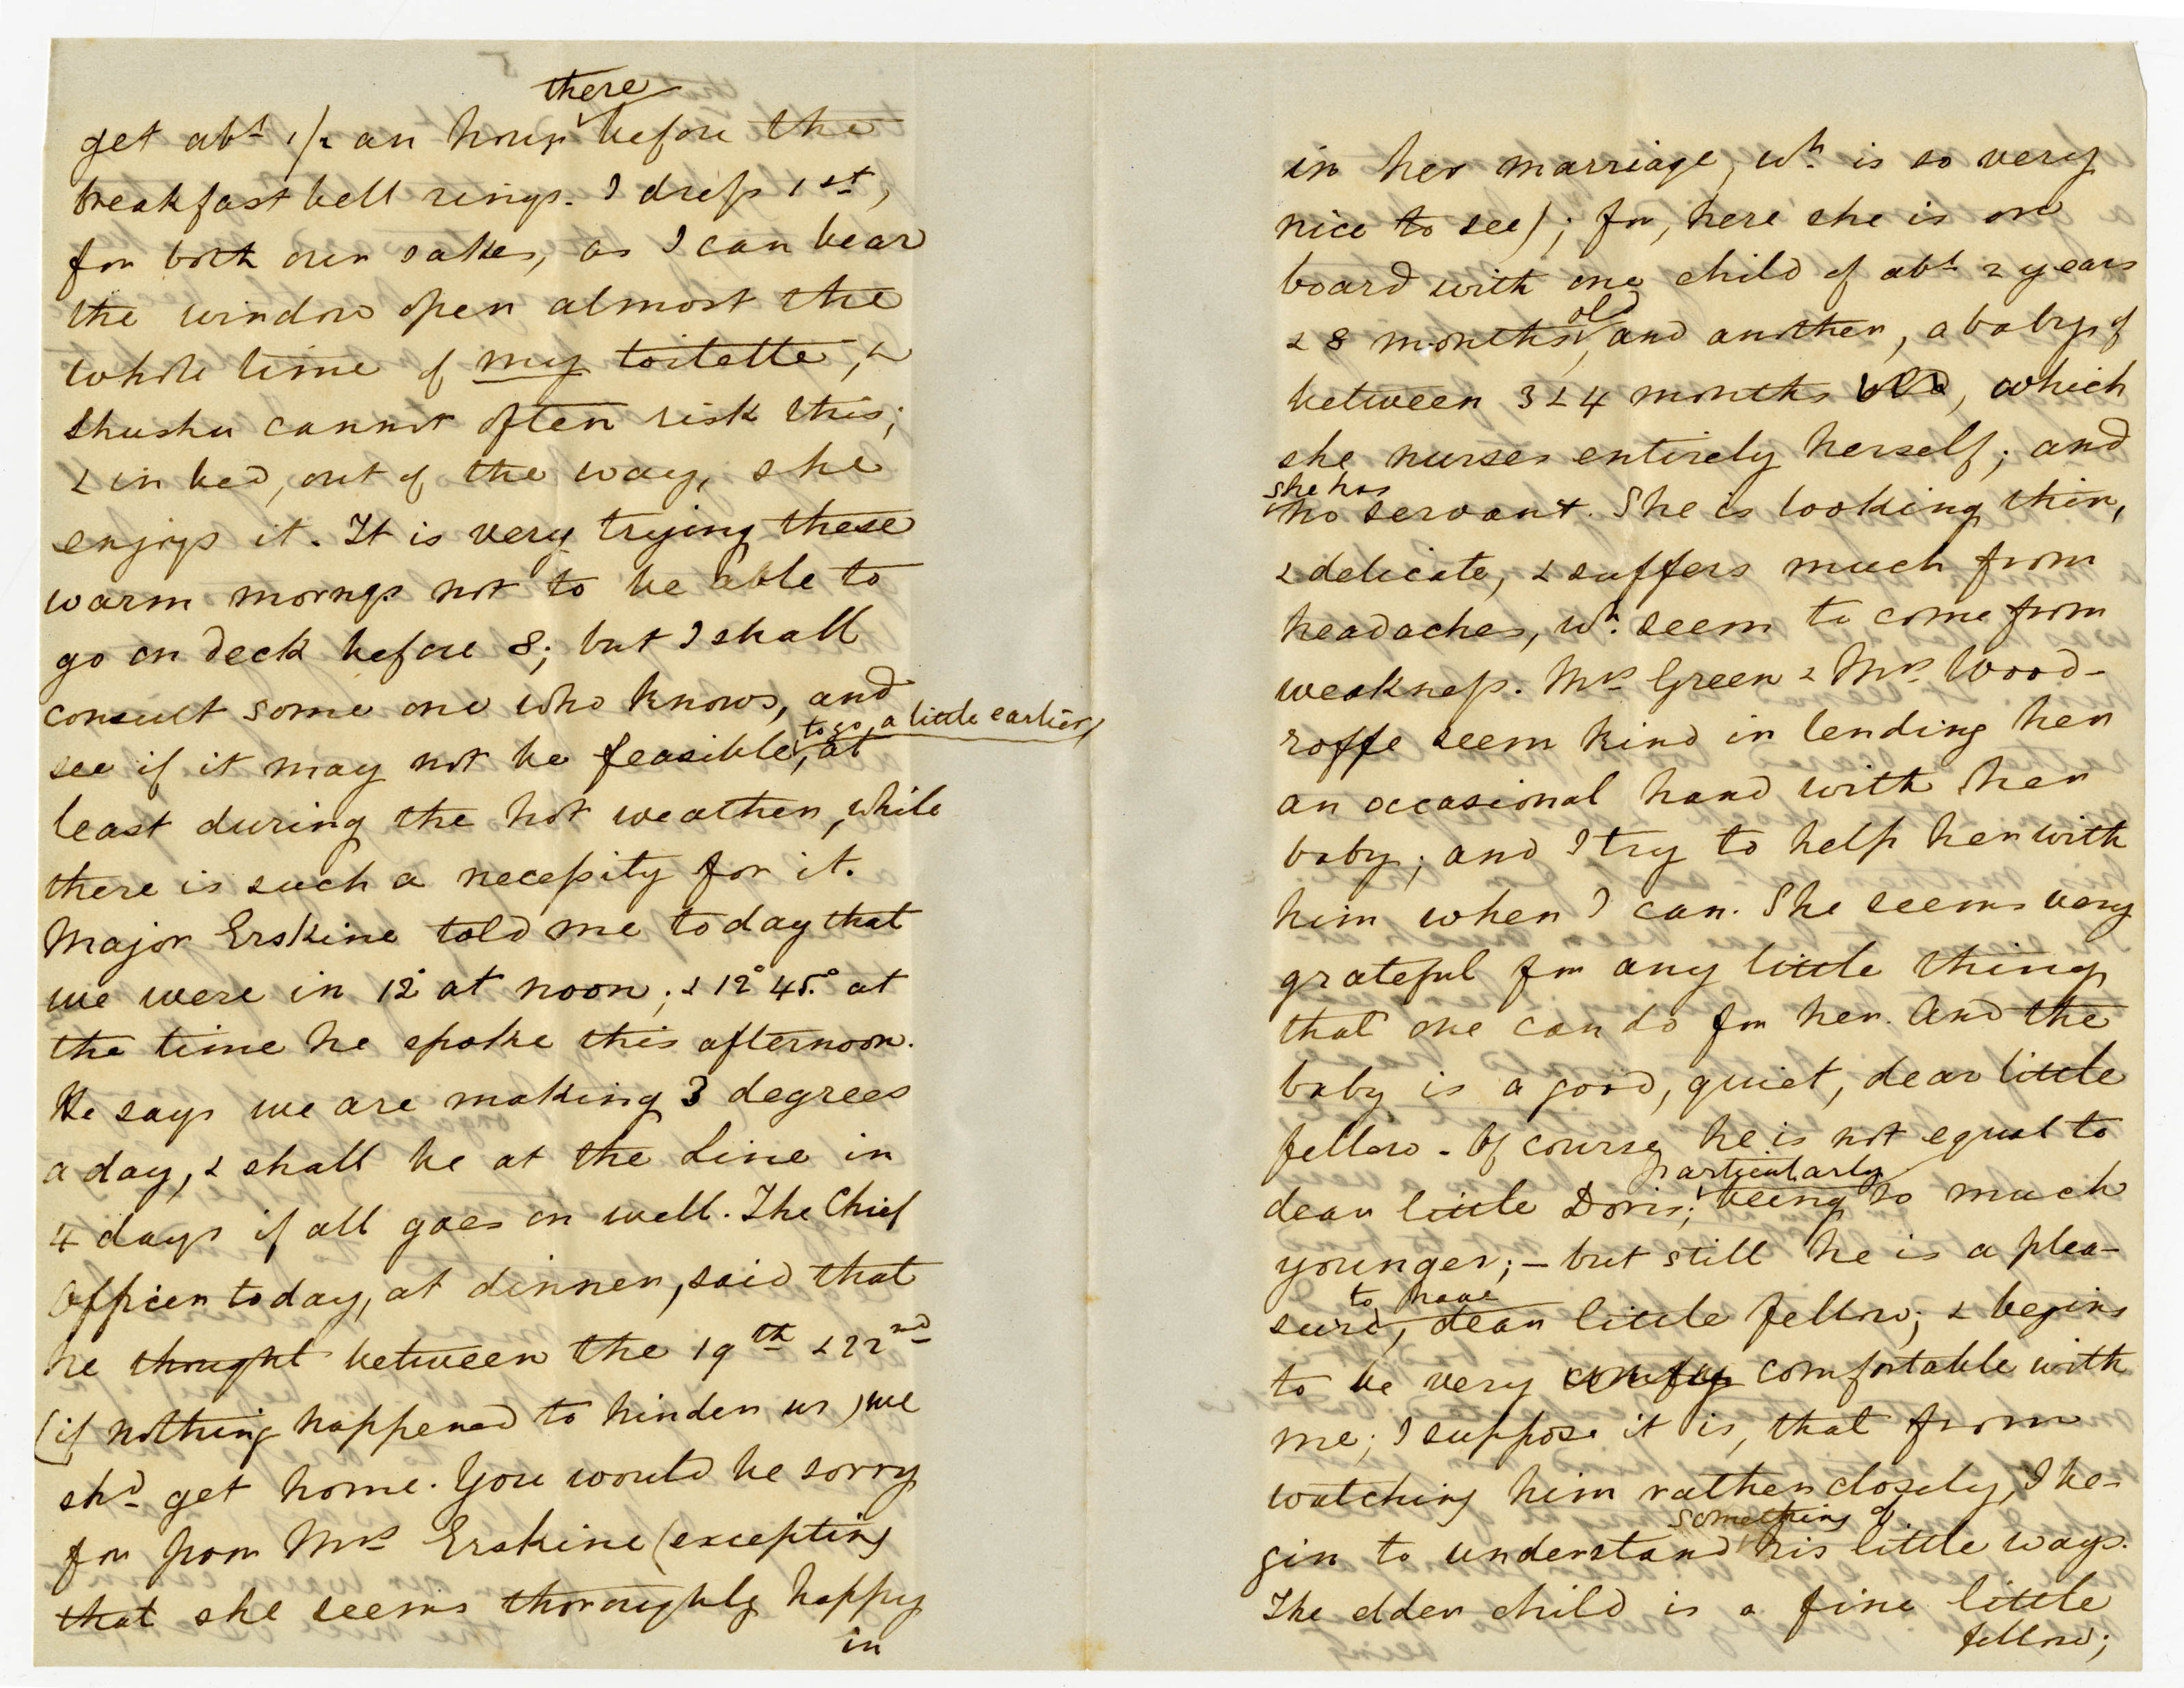 there
get abt 1/2 an hour before the
breakfast bell rings. I dress 1st,
for both our sakes, as I can bear
the window open almost the
whole time of my toilette, &
Shushu cannot often risk this;
& in bed, out of the way, she
enjoys it. It is very trying these
warm morngs not to be able to
go on deck before 8; but I shall
consult some one who knows, and
to go a little earlier,
see if it may not be feasible, at
least during the hot weather, while
there is such a necessity for it.
Major Erskine told me today that
we were in 12° at noon; & 12° 45° at
the time he spoke this afternoon.
He says we are making 3 degrees
a day, & shall be at the Line in
4 days if all goes on well. The Chief
Officer today, at dinner, said that
he thought between the 19th & 22nd
(if nothing happened to hinder us) we
shd get home. You would be sorry
for poor Mrs Erskine (excepting
that she seems thoroughly happy
in
in her marriage, wh. is so very
nice to see); for, here she is on
board with one child of abt 2 years
old
& 8 months, and another, a baby of
between 3 & 4 months old, which
she nurses entirely herself; and
she has
no servant. She is looking thin,
& delicate, & suffers much from
headaches, wh. seem to come from
weakness. Mrs Green & Mrs Wood-
roffe seem kind in lending her
an occasional hand with her
baby; and I try to help her with
him when I can. She seems very
grateful for any little thing
that one can do for her. And the
baby is a good, quiet, dear little
fellow. Of course he is not equal to
particularly
dear little Doris; being so much
younger; – but still he is a plea-
to have
sure, dear little fellow; & begins
to be very comfy comfortable with
me; I suppose it is, that from
watching him rather closely, I be-
something of
gin to understand his little ways.
The elder child is a fine little
fellow;